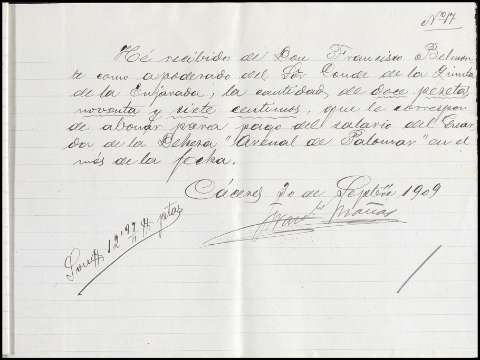 Nº 77
Hé recibido de Don Francisco Belmon
te como apoderado del Sr. Conde de la Quinta
de la Enjarada, la cantidad de doce pesetas
noventa y siete centimos, que le correspon
de abonar para pago del salario del Guar
da de la Dehesa "Arenal de Palomar" en el
més de la fecha.
Cáceres 20 de Septbre 1909
Son 12'97 ptas